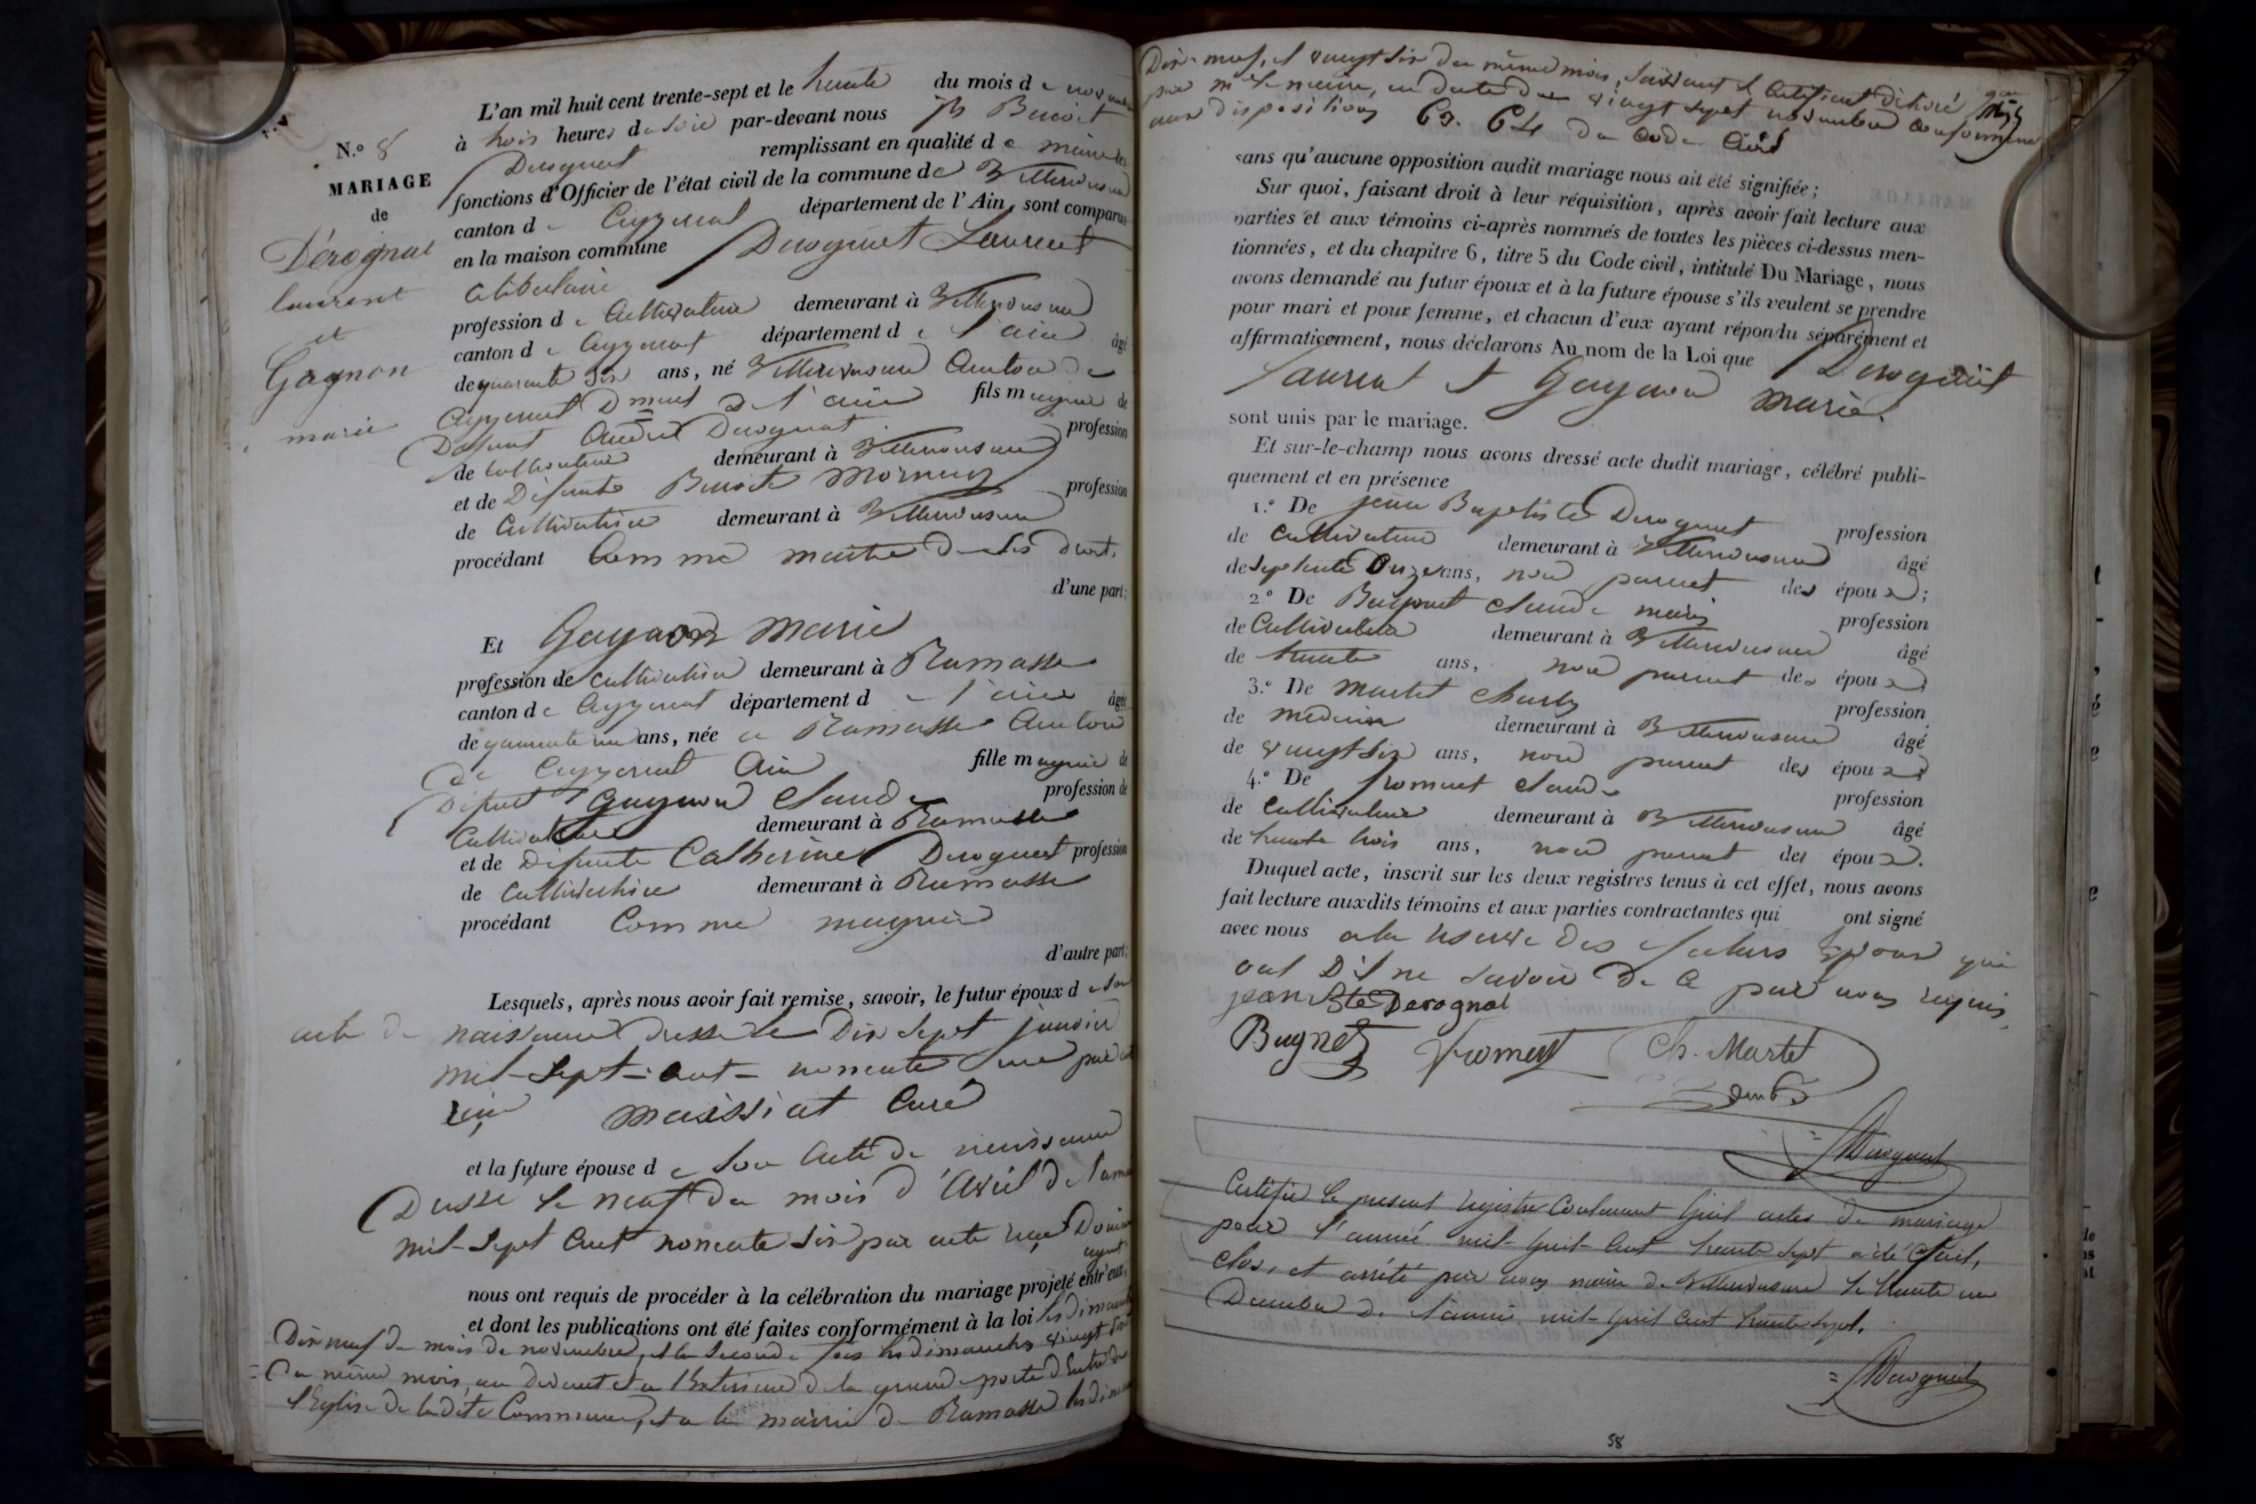 N.º 8
MARIAGE
de
Dérognat
laurent
et
Gagnon
marie
L'an mil huit cent trente-sept et le trente du mois de novembre
à trois heures du soir par-devant nous Jh Benoit
Derognat remplissant en qualité de maire les
fonctions d'Officier de l'état civil de la commune de Villereversure
canton de Ceyzeriat département de l'Ain, sont comparus
en la maison commune Derognat Laurent
célibataire
profession de Cultivateur demeurant à Villereversure
canton de Ceyzeriat département de l'ain âgé
de quarante six ans, né Villereversure Canton de
Ceyzeriat Dment de l'ain fils majeur de
Défunt André Derognat profession
de Cultivateur demeurant à Villereversure
et de Défunte Benoite Mornay profession
de Cultivatrice demeurant à Villereversure
procédant Comme maitre de ses droits
d'une part;
Et Gagnon Marie
profession de cultivatrice demeurant à Ramasse
canton de Ceyzeriat département de l'ain âgée
de quarante un ans, née a Ramasse Canton
de Ceyzeriat Ain fille majeure de
Défunt Gagnon Claude profession de
Cultivateur demeurant à Ramasse
et de Défunte Catherine Derognat profession
de Cultivatrice demeurant à Ramasse
procédant Comme majeure
d'autre part;
Lesquels, après nous avoir fait remise, savoir, le futur époux de son
acte de naissance dressé le Dix Sept janvier
mil-Sept-Cent-nonente une par acte
reçu Maissiat Curé
et la future épouse de Son Acte de naissance
Dressé le neuf du mois d'Avril de l'année
mil-Sept Cent nonente Six par acte reçu
nous ont requis de procéder à la célébration du mariage projeté entr'eux,
et dont les publications ont été faites conformément à la loi les dimanches
Dix neuf du mois de novembre, et la Seconde fois les dimanches vingt six
Du même mois, au devant et a l'Extérieure de la grande porte d'Entrée de
l'Eglise de ladite Commune, et a la mairie de Ramasse les dimanches
Dix-neuf, et vingt six du même mois, suivant le Certificat délivré
par mr le maire, en date du vingt sept novembre conformément
aux dispositions 63. 64 du code Civil
sans qu'aucune opposition audit mariage nous ait été signifiée;
Sur quoi, faisant droit à leur réquisition, après avoir fait lecture aux
parties et aux témoins ci-après nommés de toutes les pièces ci-dessus men-
tionnées, et du chapitre 6, titre 5 du Code civil, intitulé Du Mariage, nous
avons demandé au futur époux et à la future épouse s'ils veulent se prendre
pour mari et pour femme, et chacun d'eux ayant répondu séparément et
affirmativement, nous déclarons Au nom de la Loi que Derognat
Laurent et Gagnon Marie
sont unis par le mariage.
Et sur-le-champ nous avons dressé acte dudit mariage, célébré publi-
quement et en présence
1.º De jean Baptiste Derognat profession
de cultivateur demeurant à Villereversure âgé
de septente Onze ans, non parent des époux;
2.º De Bugnet Claude marie profession
de Cultivateur demeurant à Villereversure âgé
de trente ans, non parent des époux;
3.º De Martet Charles profession
de médecin demeurant à Villereversure âgé
de vingt six ans, non parent des époux;
4.º De froment Claude profession
de Cultivateur demeurant à Villereversure âgé
de trente trois ans, non parent des époux.
Duquel acte, inscrit sur les deux registres tenus à cet effet, nous avons
fait lecture auxdits témoins et aux parties contractantes qui ont signé
avec nous a la reserve des futurs Epoux qui
ont Dit ne savoir de ce par nous requis.
jean Bte Derognat
Bugnet froment Ch. Martet
Derognat
Certifié le present registre Contenant huit actes de mariage
pour l'année mil-huit-Cent trente sept a été Clail,
Clos, et arrété par nous maire de Villereversure le trente un
Decembre de l'année mil-huit Cent trente sept.
Derognat
58